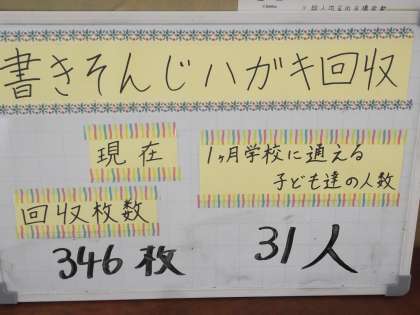 書きそんじハガキ回収
現在
回収枚数
346枚
1ヶ月学校に通える
子ども達の人数
31人